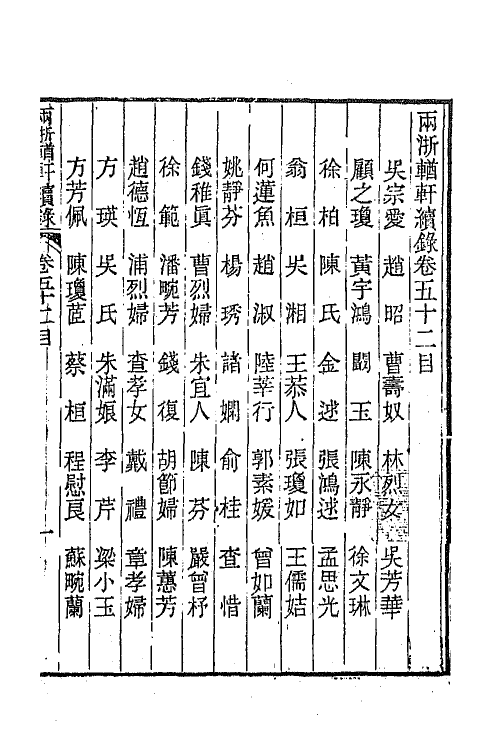 兩浙輶軒續錄卷五十二目
吳宗愛　趙　昭　曹壽奴　林烈女　吳芳華
顧之瓊　黃字鴻　闞　玉　陳永靜　徐文琳
徐　柏　陳　氏　金　逑　張鴻逑　孟思光
翁　桓　吳　湘　王恭人　張瓊如　王儒姞
何蓮魚　趙　淑　陸莘行　郭素媛　曾如蘭
姚靜芬　楊　琇　諸　嫻　俞　桂　查　惜
錢稚眞　曹烈婦　朱宜人　陳　芬　嚴曾杼
徐　範　潘畹芳　錢　復　胡節婦　陳蕙芳
趙德恆　浦烈婦　查孝女　戴　禮　章孝婦
方　瑛　吳　氏　朱滿娘　李　芹　梁小玉
方芳佩　陳瓊茝　蔡　桓　程慰良　蘇畹蘭
兩浙輶軒續錄　卷五十二目　一